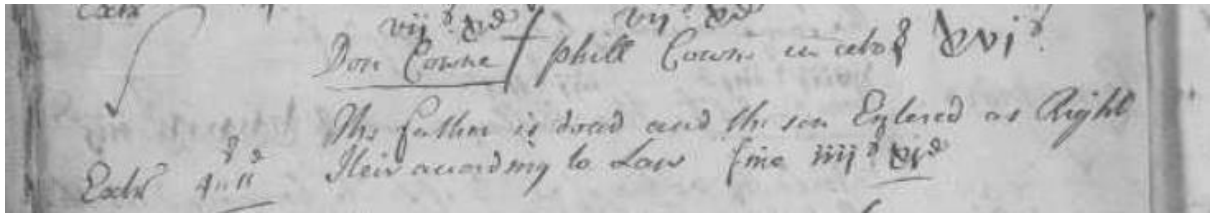 vijs xd vijs xd
Don Cowne / phill Cowne in cebo xvjs
The father is dead and the son Entered as Right
Heir according to Law fine iiijs xjd
Extr 4s 11d